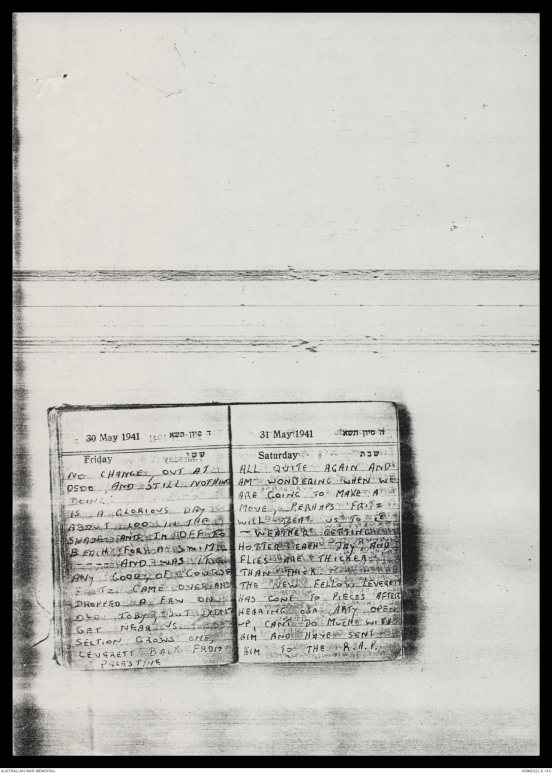 30 May 1941 ד סיון תשא
Friday ששי
NO CHANGE, OUT AT
0500, AND STILL NOTHING
DOING.
IS A GLORIOUS DAY
ABOUT 100 IN THE
SHADE AND I'M OFF TO
BEACH FOR A SWIM
----- AND WAS IT
ANY GOOD, OF COURSE
CAME OVER AND
DROPPED A FEW ON
OLD TOBY BUT DIDN'T
GET NEAR US.
SECTION GROWS ONE
LEVERETT BACK FROM
PALESTINE
31 May 1941 ה סיון תשא
Saturday שבת
ALL QUITE AGAIN AND
AM WONDERING WHEN WE
ARE GOING TO MAKE A
MOVE, PERHAPS FRITZ
WILL BEAT US TO IT
- WEATHER GETTING
HOTTER EACH DAY, AND
FLIES ARE THICKER
THAN THICK
THE NEW FELLOW LEVERETT
HAS GONE TO PIECES AFTER
HEARING OUR ARTY OPEN
UP, CAN'T DO MUCH WITH
HIM AND HAVE SENT
HIM TO THE R.A.P.
AUSTRALIAN WAR MEMORIAL